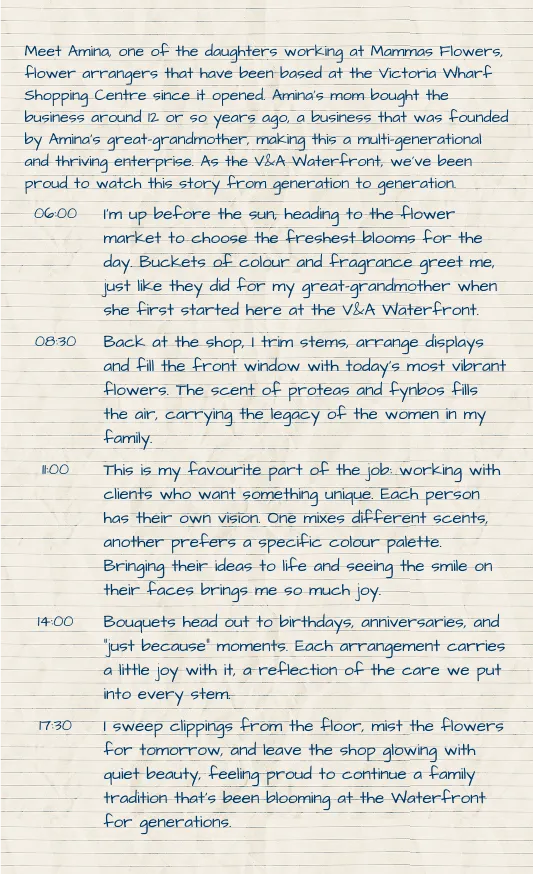 Meet Amina, one of the daughters working at Mammas Flowers,
flower arrangers that have been based at the Victoria Wharf
Shopping Centre since it opened. Amina's mom bought the
business around 12 or so years ago, a business that was founded
by Amina's great-grandmother, making this a multi-generational
and thriving enterprise. As the V&A Waterfront, we've been
proud to watch this story from generation to generation.
06:00 I'm up before the sun, heading to the flower
market to choose the freshest blooms for the
day. Buckets of colour and fragrance greet me,
just like they did for my great-grandmother when
she first started here at the V&A Waterfront.
08:30 Back at the shop, I trim stems, arrange displays
and fill the front window with today's most vibrant
flowers. The scent of proteas and fynbos fills
the air, carrying the legacy of the women in my
family.
11:00 This is my favourite part of the job: working with
clients who want something unique. Each person
has their own vision. One mixes different scents,
another prefers a specific colour palette.
Bringing their ideas to life and seeing the smile on
their faces brings me so much joy.
14:00 Bouquets head out to birthdays, anniversaries, and
"just because" moments. Each arrangement carries
a little joy with it, a reflection of the care we put
into every stem.
17:30 I sweep clippings from the floor, mist the flowers
for tomorrow, and leave the shop glowing with
quiet beauty, feeling proud to continue a family
tradition that's been blooming at the Waterfront
for generations.